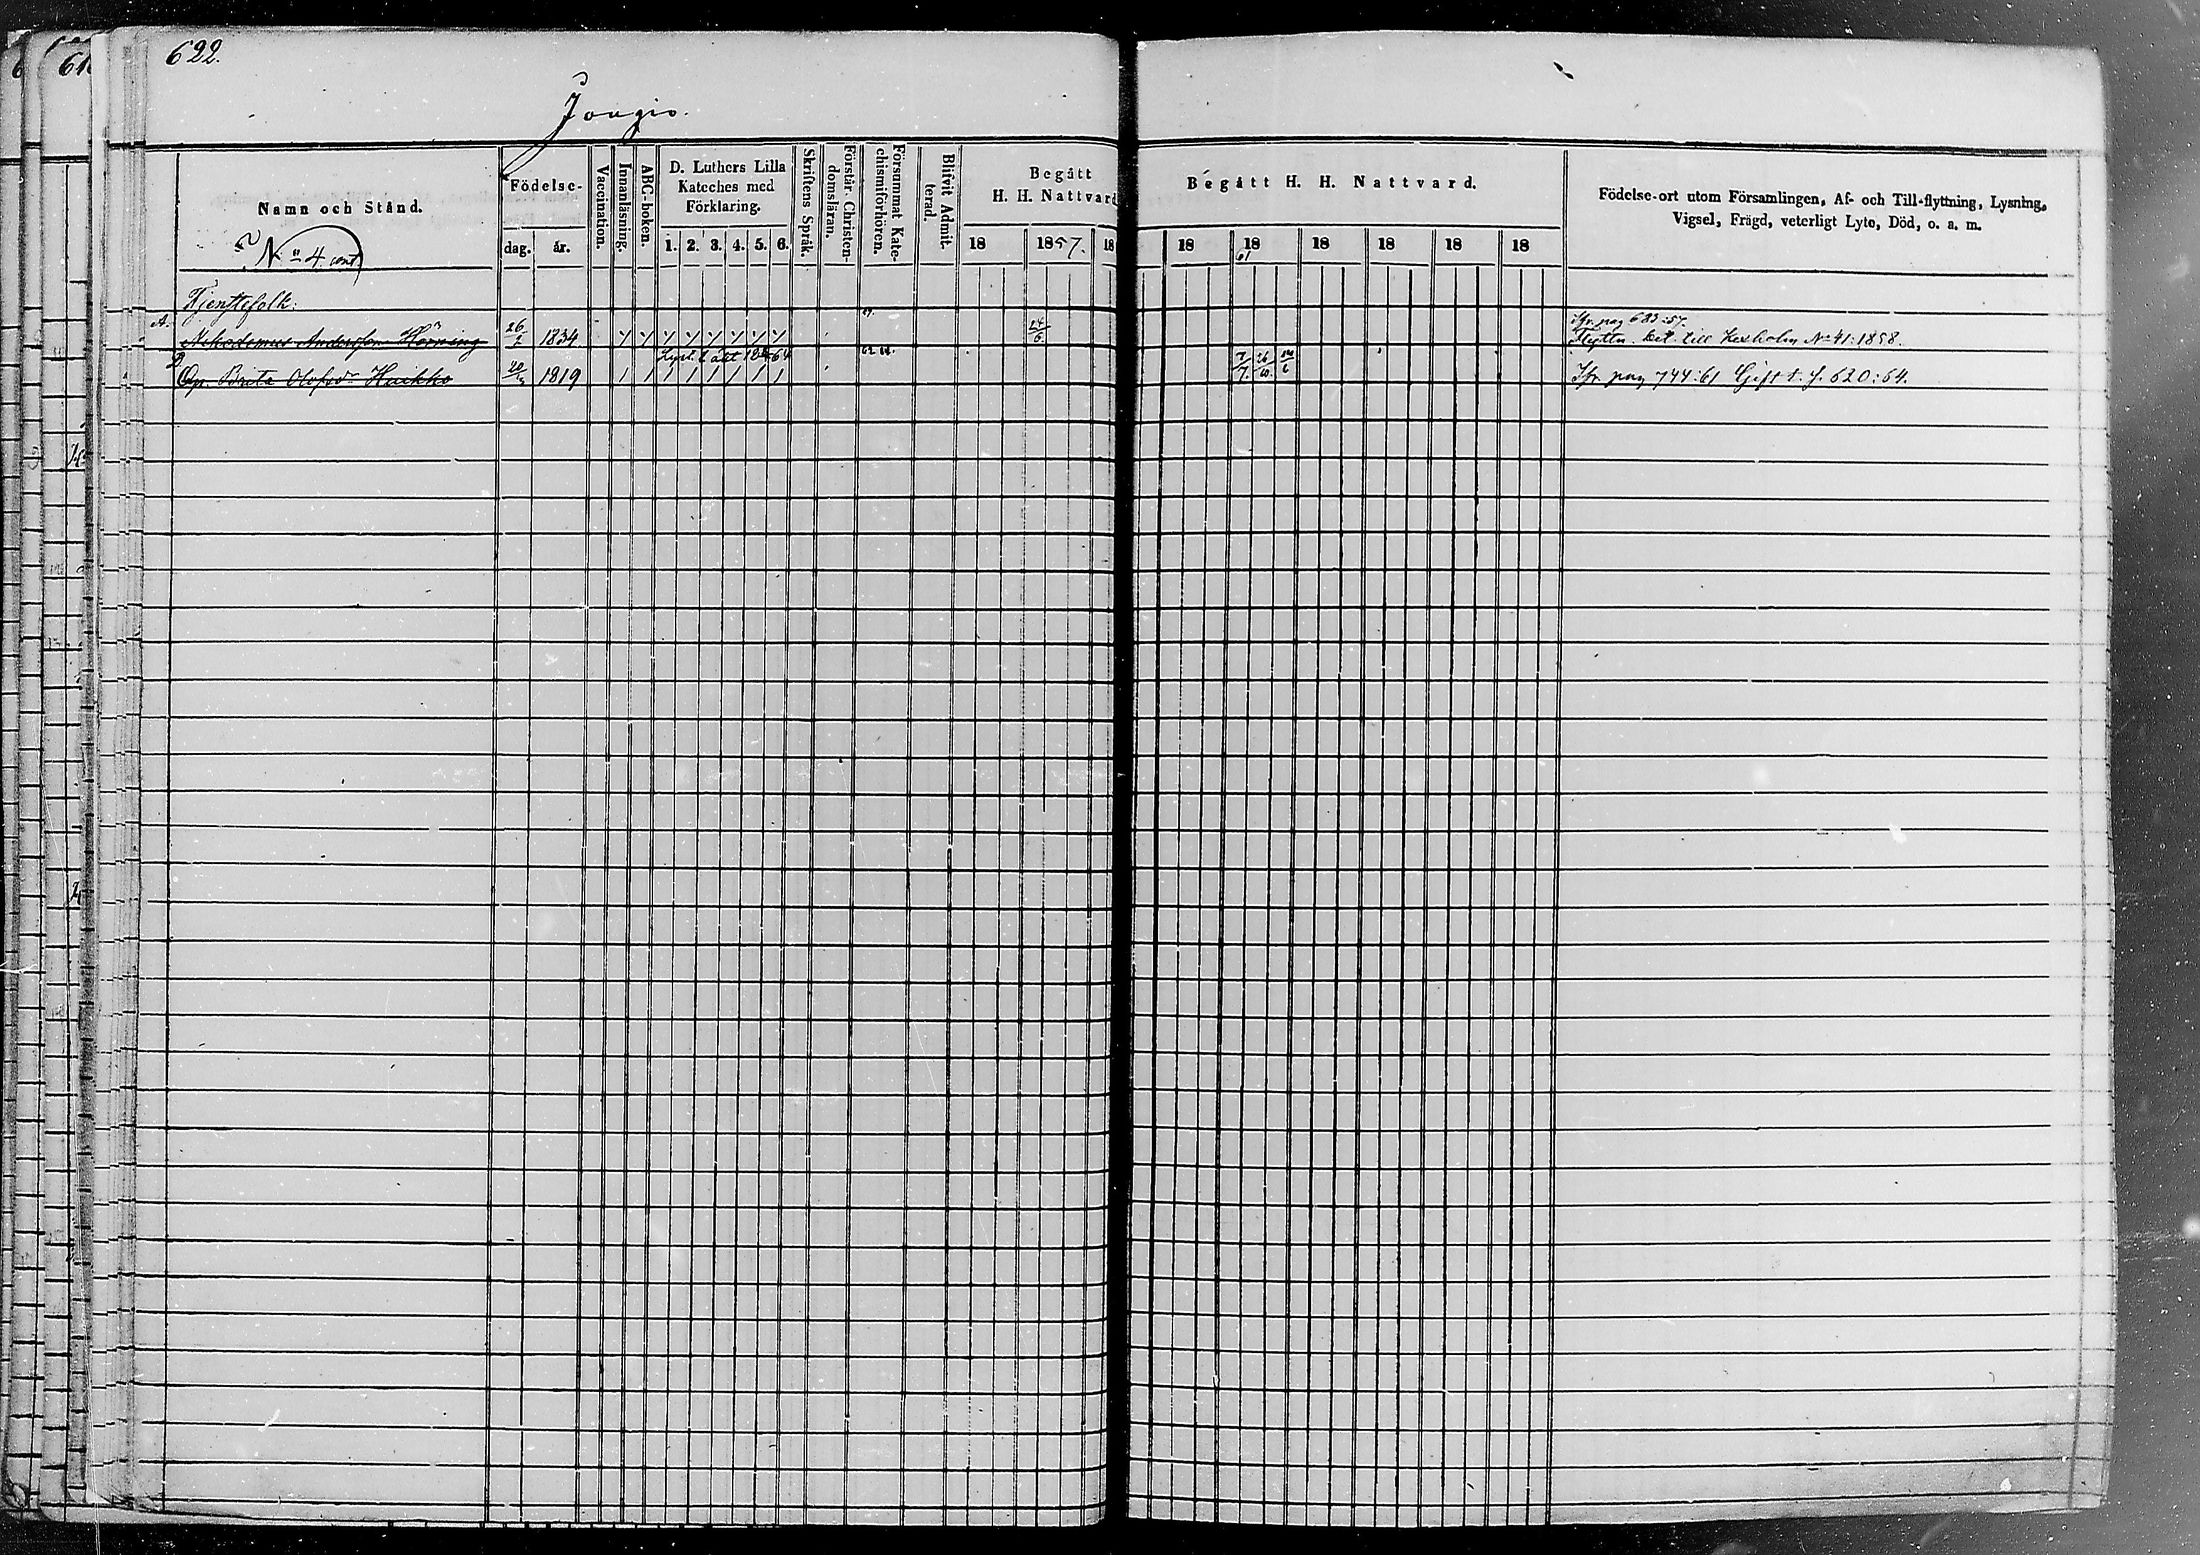 622.
616
Jougio.
Namn och Stånd.
Födelse-
dag.
år.
Vaccination.
Innanläsning.
ABC-boken.
D. Luthers Lilla
Kateches med
Förklaring.
1. 2. 3. 4. 5. 6.
Skriftens Språk.
Förstår Christen-
domsläran.
Försummat Kate-
chismiförhören.
Blifvit Admit-
terad.
Begått
H. H. Nattvard
18 1857. 18
Begått H. H. Nattvard.
18 18 61 18 18 18 18
Födelse-ort utom Församlingen, Af- och Till-flyttning, Lysning,
Vigsel, Frägd, veterligt Lyte, Död, o. a. m.
N:o 4. cont
Tjenstefolk:
A. Nikodemus Andersson Hörning 26/2 1834 24/6
Ifr. pag 683:57.
Flytta. bet. till Kexholm No 41:1858.
Lyst. t. äkt. 1864
Brita Olofsdr Huikko 1819 62 7/7 26/10 6
Ifr pag 744:61 Gift t. f. 620:64.